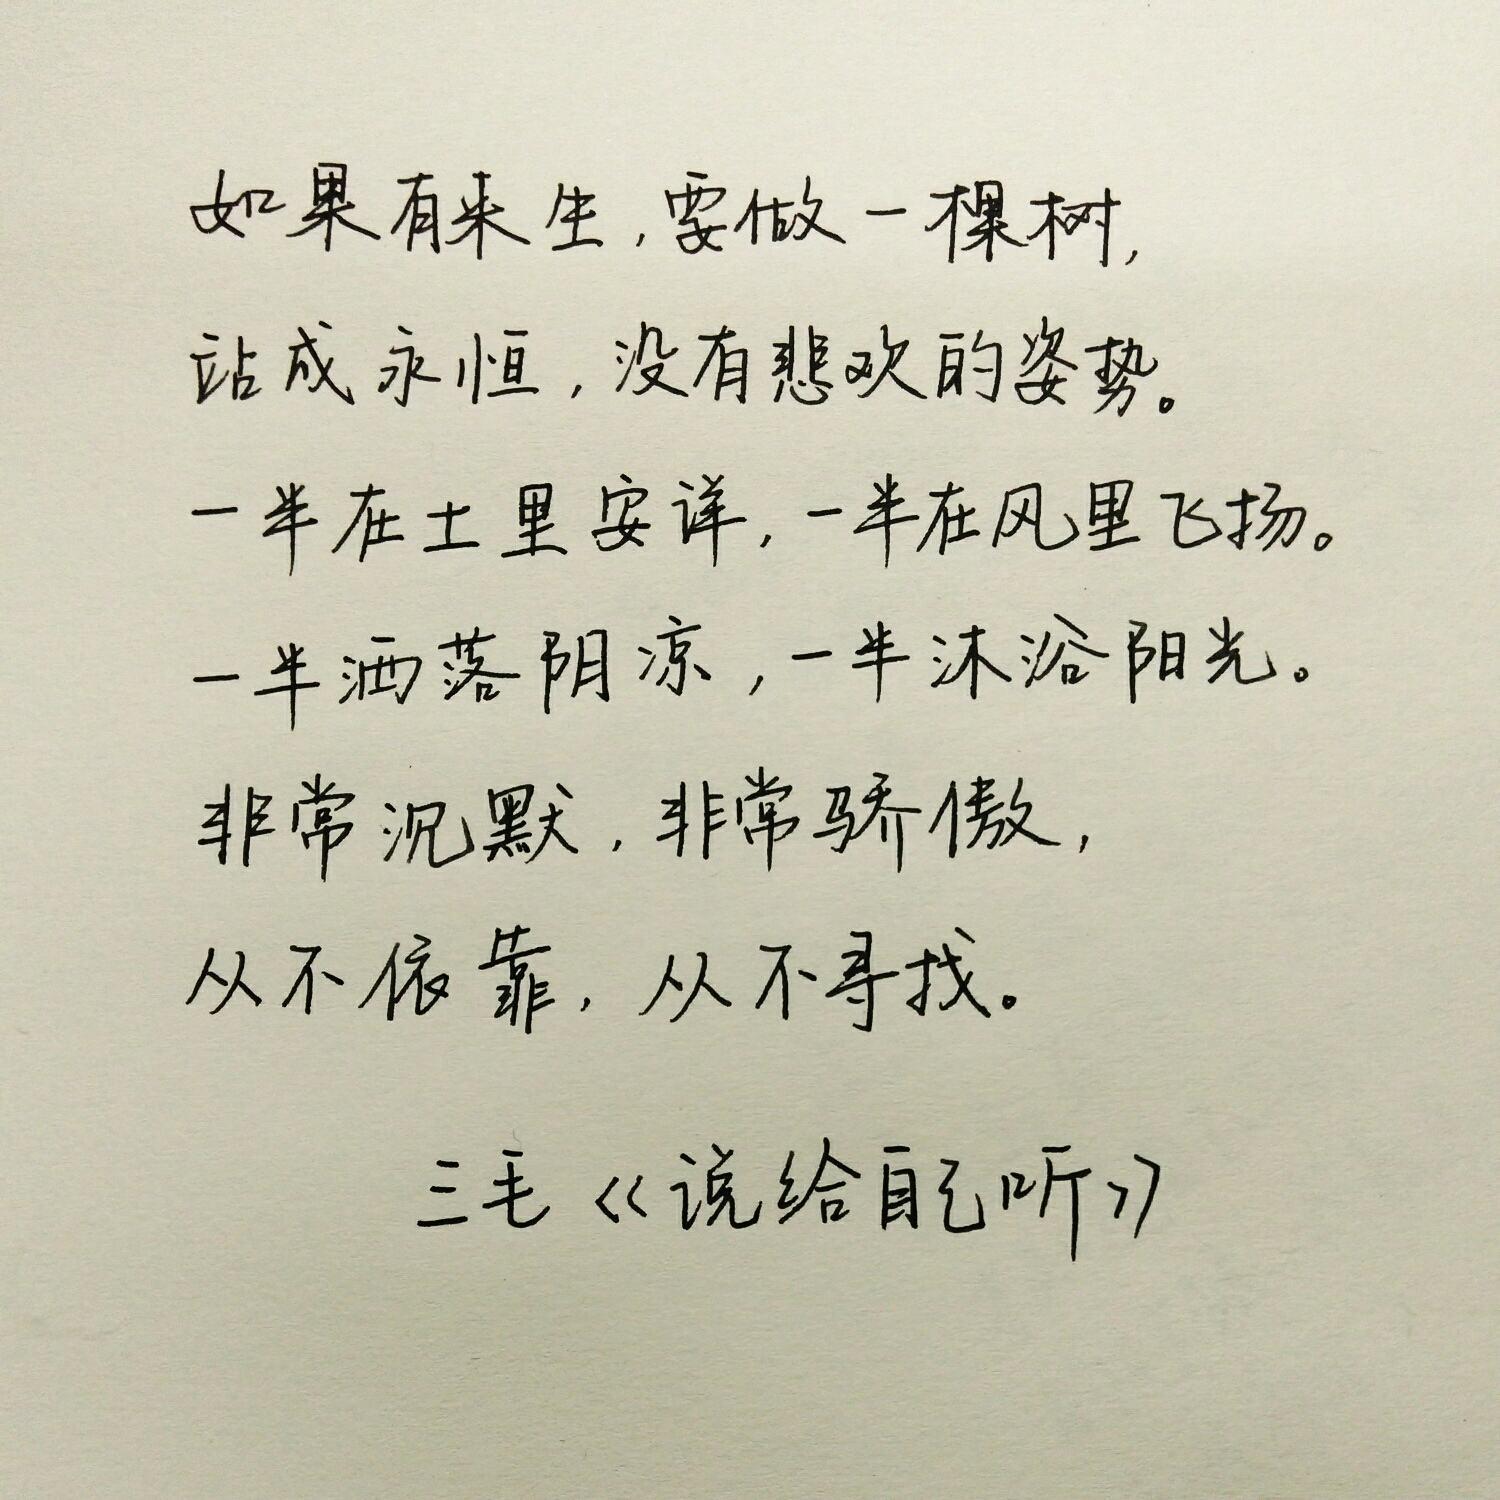 如果有来生，要做一棵树，
站成永恒，没有悲欢的姿势。
一半在土里安详，一半在风里飞扬。
一半洒落阴凉，一半沐浴阳光。
非常沉默，非常骄傲，
从不依靠，从不寻找。
三毛《说给自己听》